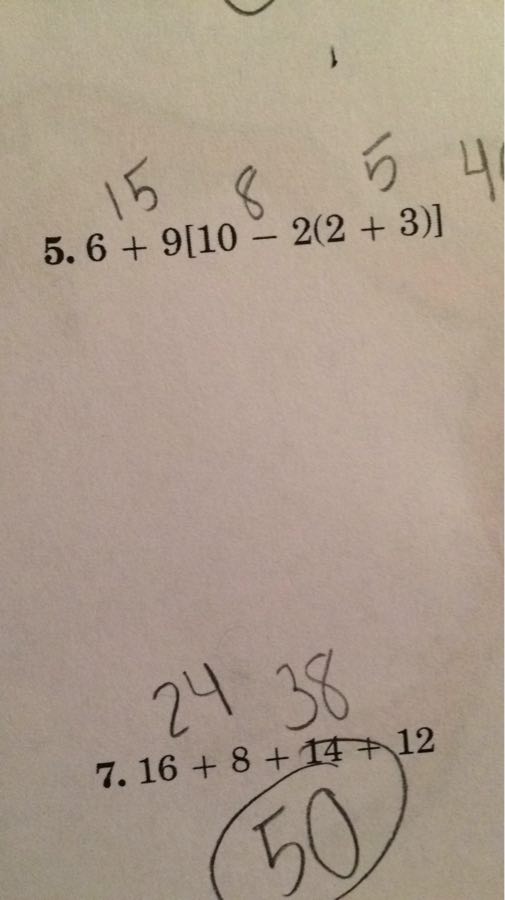 15 8 5
5. 6 + 9[10 − 2(2 + 3)]
24 38
7. 16 + 8 + 14 + 12
50